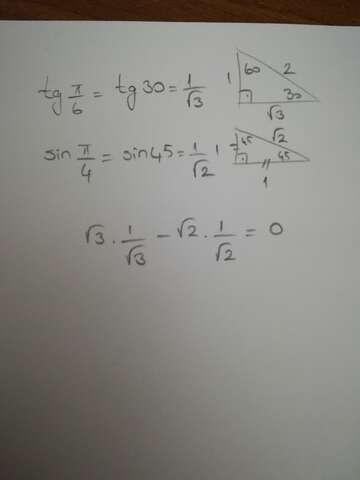 tg π/6 = tg 30 = 1/√3
1 60 2 30 √3
sin π/4 = sin 45 = 1/√2
1 45 √2 45 1
√3 . 1/√3 - √2 . 1/√2 = 0